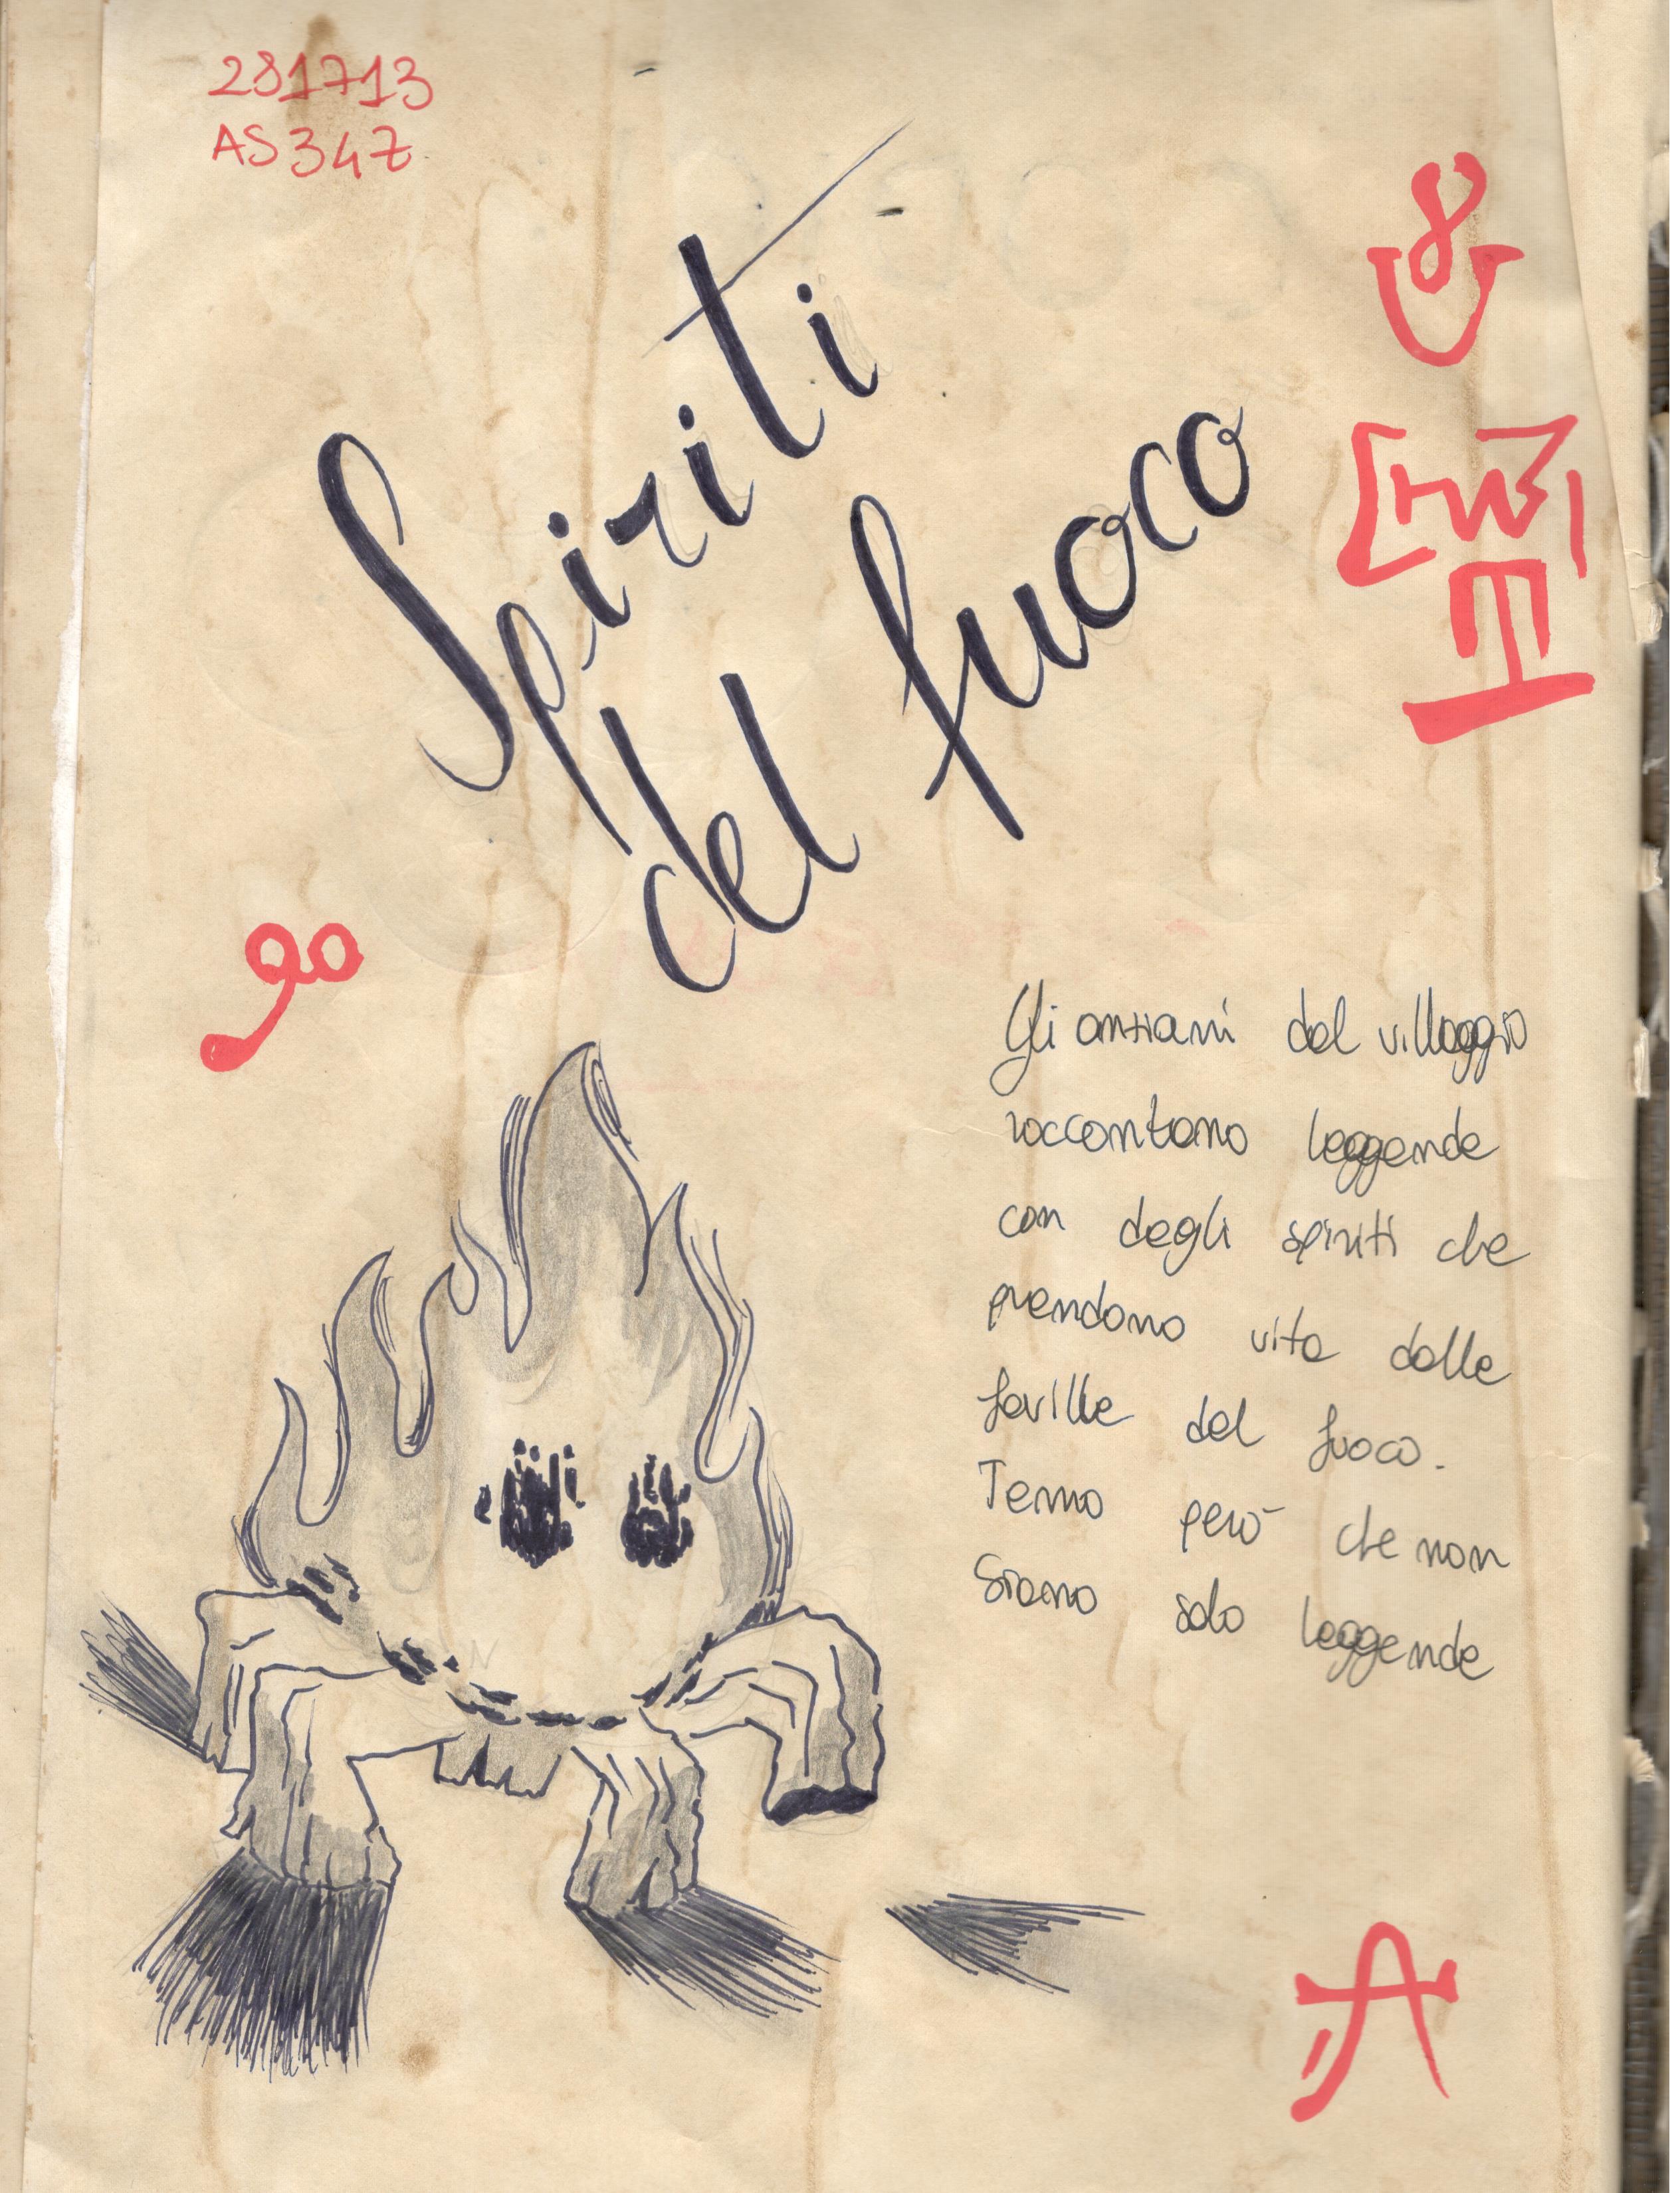 281713
AS347
Spiriti
del fuoco
Gli anziani del villaggio
raccontano leggende
con degli spiriti che
prendono vita dalle
faville del fuoco.
Temo però che non
siano solo leggende